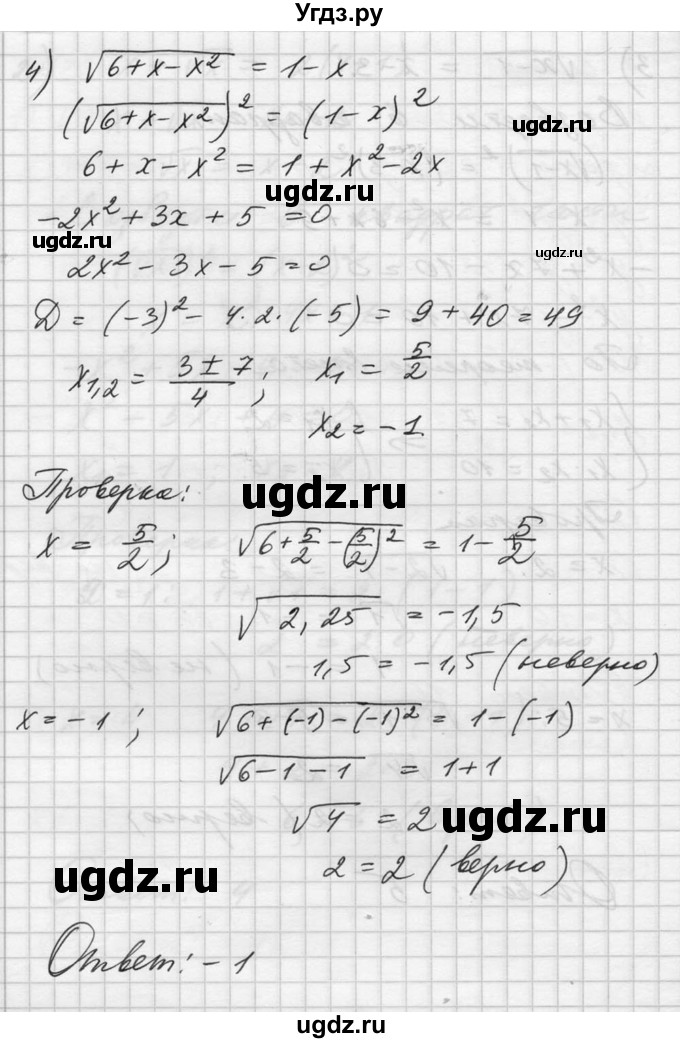 Угдз.ру
4) √(6+x-x²) = 1-x
(√(6+x-x²))² = (1-x)²
ugdz.ru
6+x-x² = 1+x²-2x
ugdz.ru
-2x²+3x+5=0
ugdz.ru
2x²-3x-5=0
ugdz.ru
D = (-3)²- 4·2·(-5) = 9+40=49
x₁,₂ = (3±7)/4; x₁ = 5/2
x₂=-1
Проверка:
ugdz.ru
x = 5/2; √(6+5/2-(5/2)²) = 1-5/2
√(2,25) = -1,5
1,5 = -1,5 (неверно)
x=-1; √(6+(-1)-(-1)²) = 1-(-1)
√(6-1-1) = 1+1
√4 = 2
ugdz.ru
2=2 (верно)
ugdz.ru
Ответ: -1
ugdz.ru